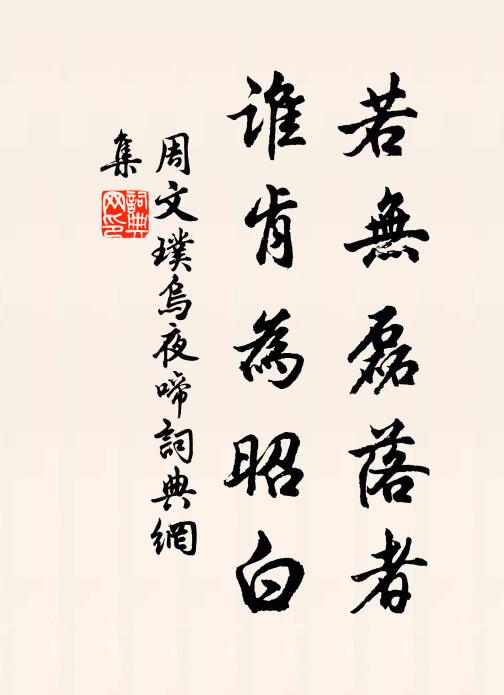 若無磊落者
誰肯為昭白
周文璞烏夜啼詞典網
集
詞典網印